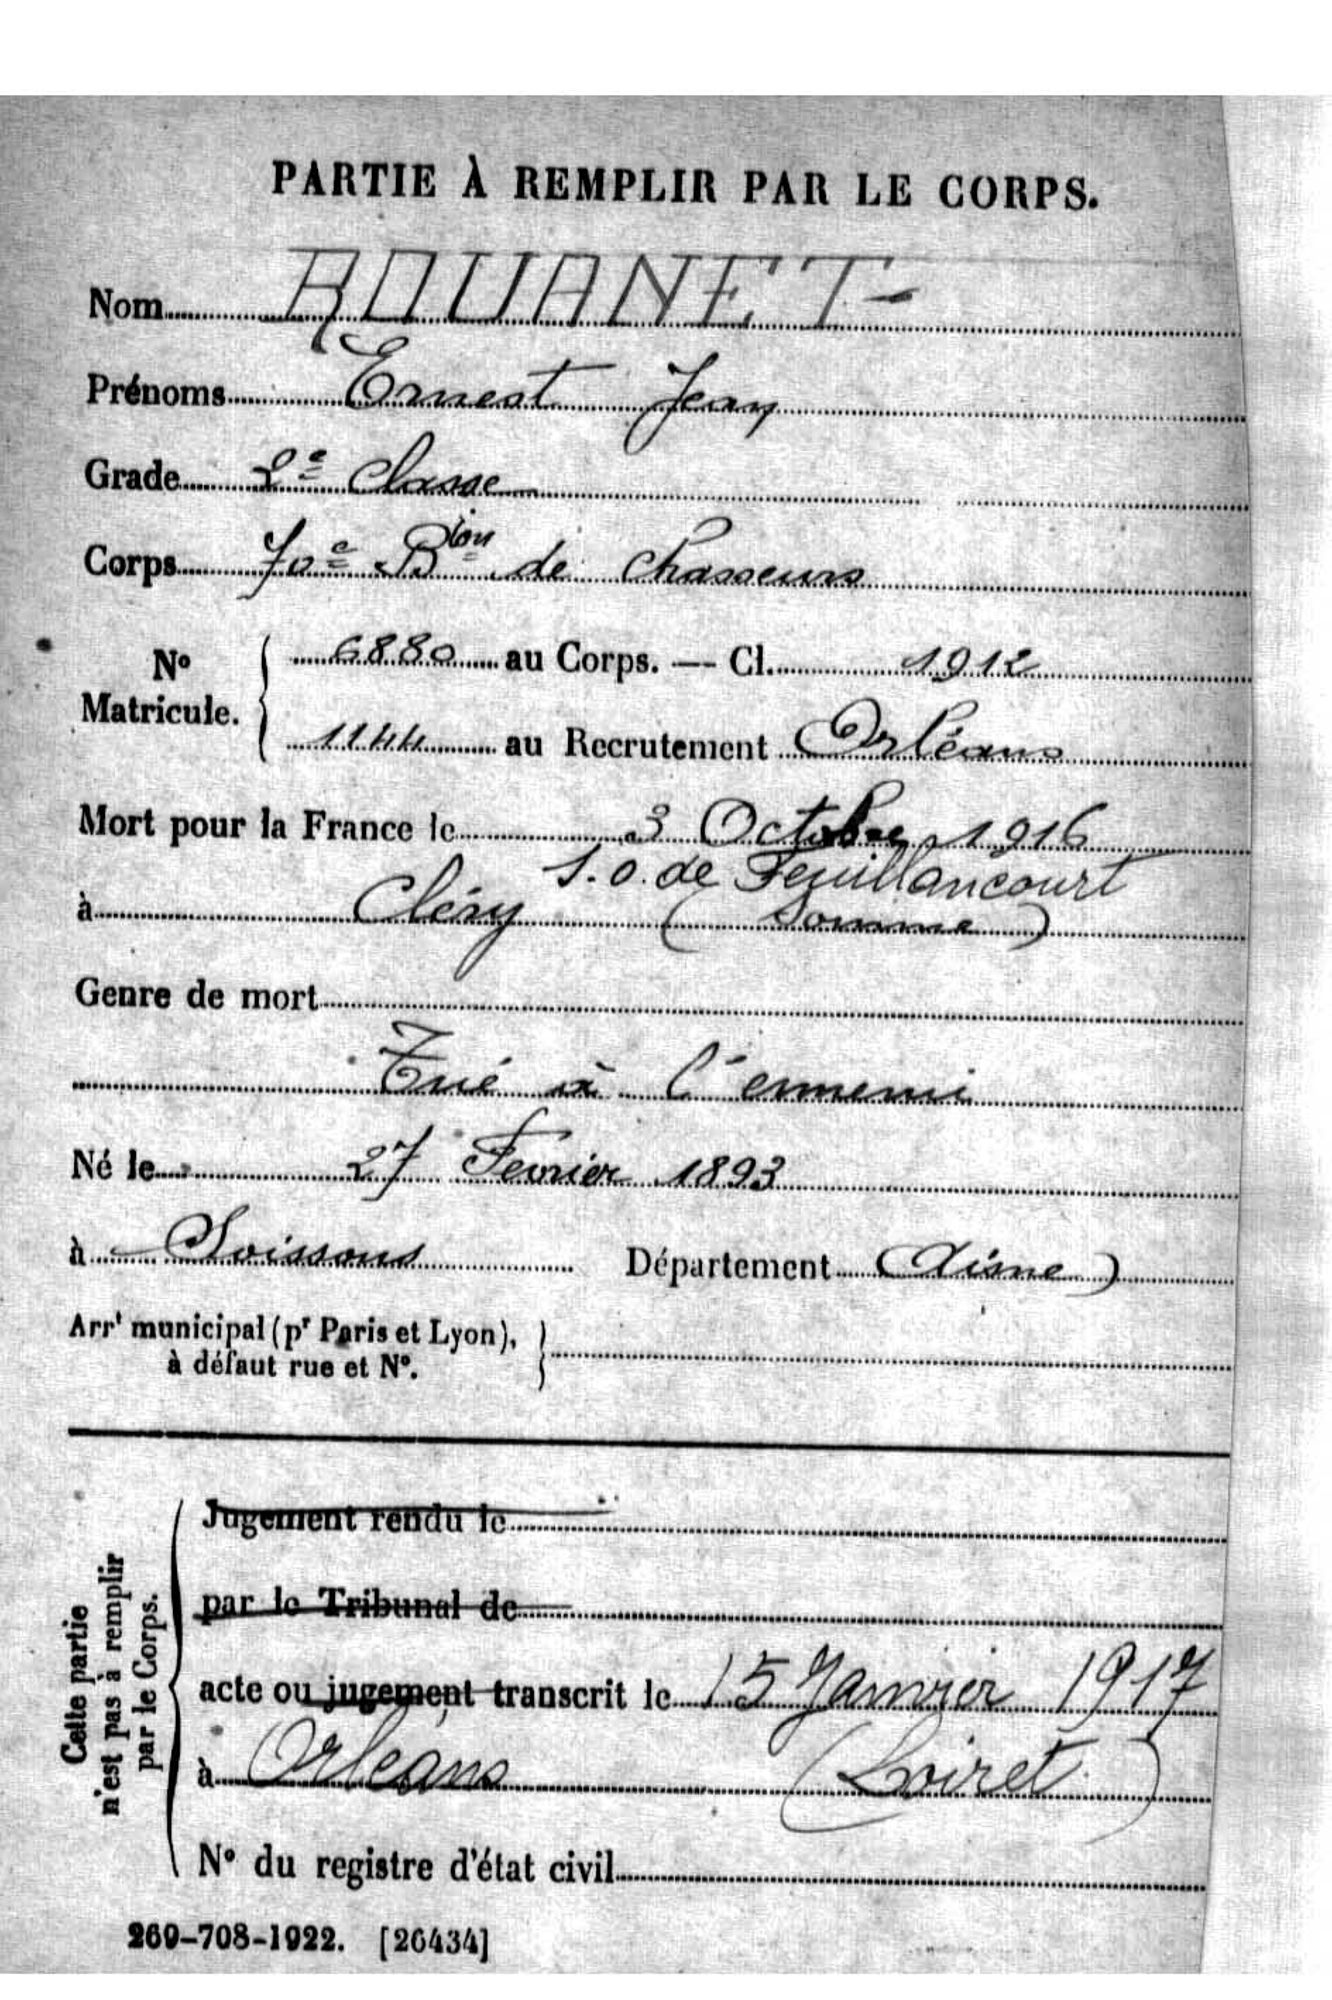 PARTIE À REMPLIR PAR LE CORPS.
Nom ROUANET
Prénoms Ernest Jean
Grade 2e Classe
Corps 70e Bion de Chasseurs
No Matricule. 6880 au Corps. — Cl. 1912
1144 au Recrutement Orléans
Mort pour la France le 3 Octobre 1916
S.O. de Feuillancourt
à Cléry (Somme)
Genre de mort
Tué à l'ennemi
Né le 27 Fevrier 1893
à Soissons Département (Aisne)
Arrt municipal (pr Paris et Lyon),
à défaut rue et No.
Cette partie
n'est pas à remplir
par le Corps.
Jugement rendu le
par le Tribunal de
acte ou jugement transcrit le 15 Janvier 1917
à Orléans (Loiret)
No du registre d'état civil
269-708-1922. [26434]